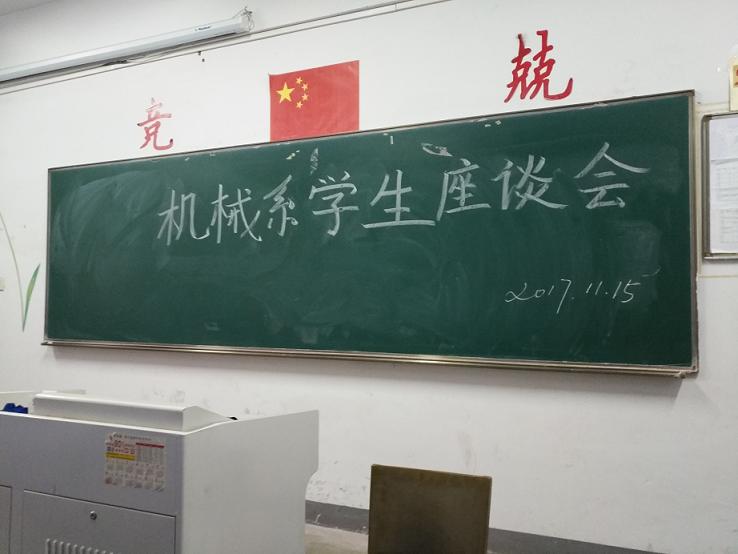 竞 兢
机械系学生座谈会
2017.11.15